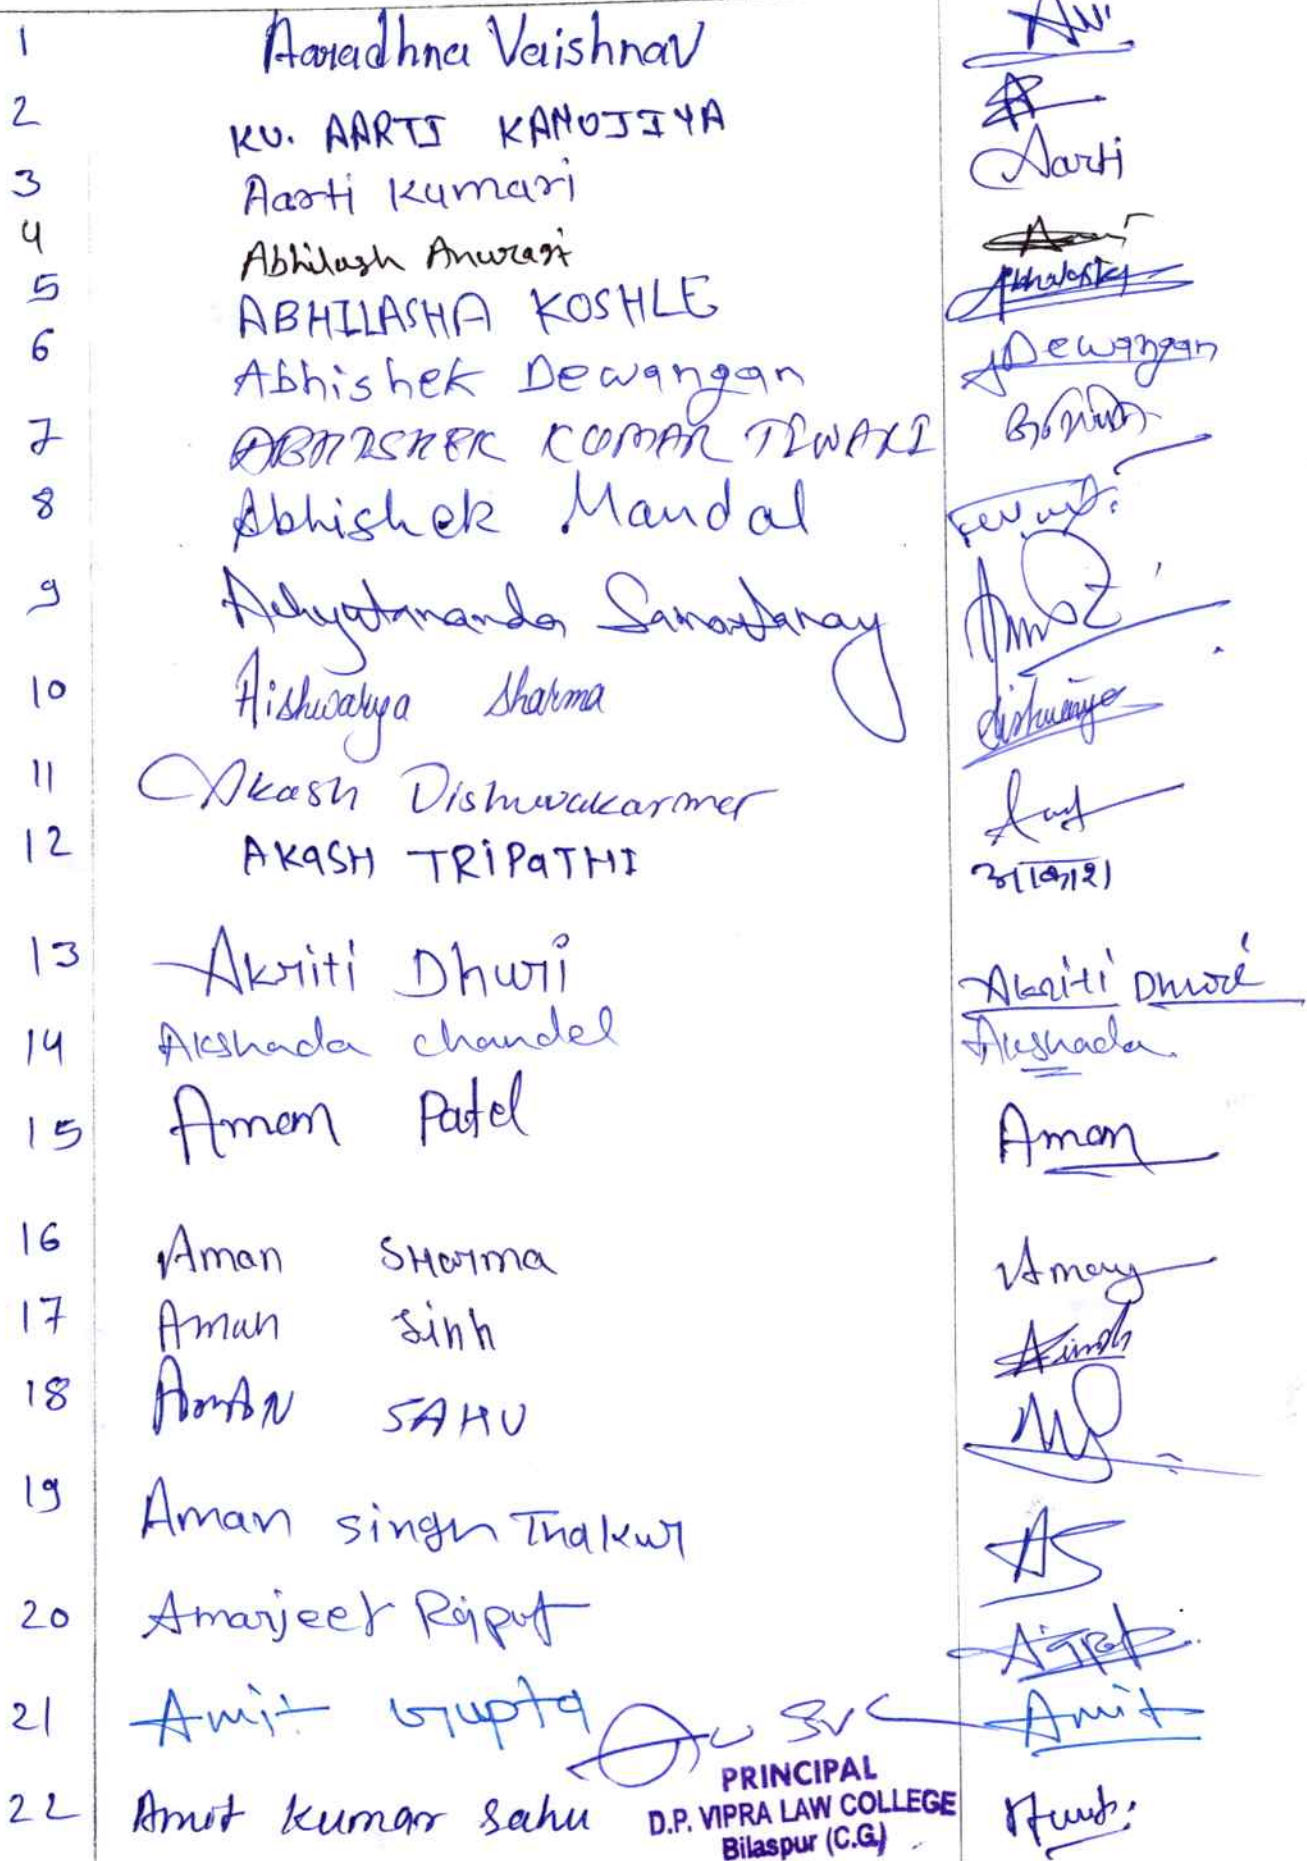 1 Aaradhna Vaishnav
2 KU. AARTI KANOJIYA
3 Aarti Kumari Aarti
4 Abhilash Anuragi
5 ABHILASHA KOSHLE
6 Abhishek Dewangan Dewangan
7 ABHISHEK KUMAR TIWARI
8 Abhishek Mandal
9 Achyutananda
10 Aishwarya Sharma
11 Akash Vishwakarma
12 AKASH TRIPATHI आकाश
13 Akriti Dhuri Akriti Dhuri
14 Akshada chandel Akshada
15 Aman Patel Aman
16 Aman Sharma
17 Aman Sinh
18 AMAN SAHU
19 Aman singh Thakur AS
20 Amarjeet Rajput
21 Amit Gupta Amit
22 Amit Kumar Sahu
PRINCIPAL
D.P. VIPRA LAW COLLEGE
Bilaspur (C.G.)